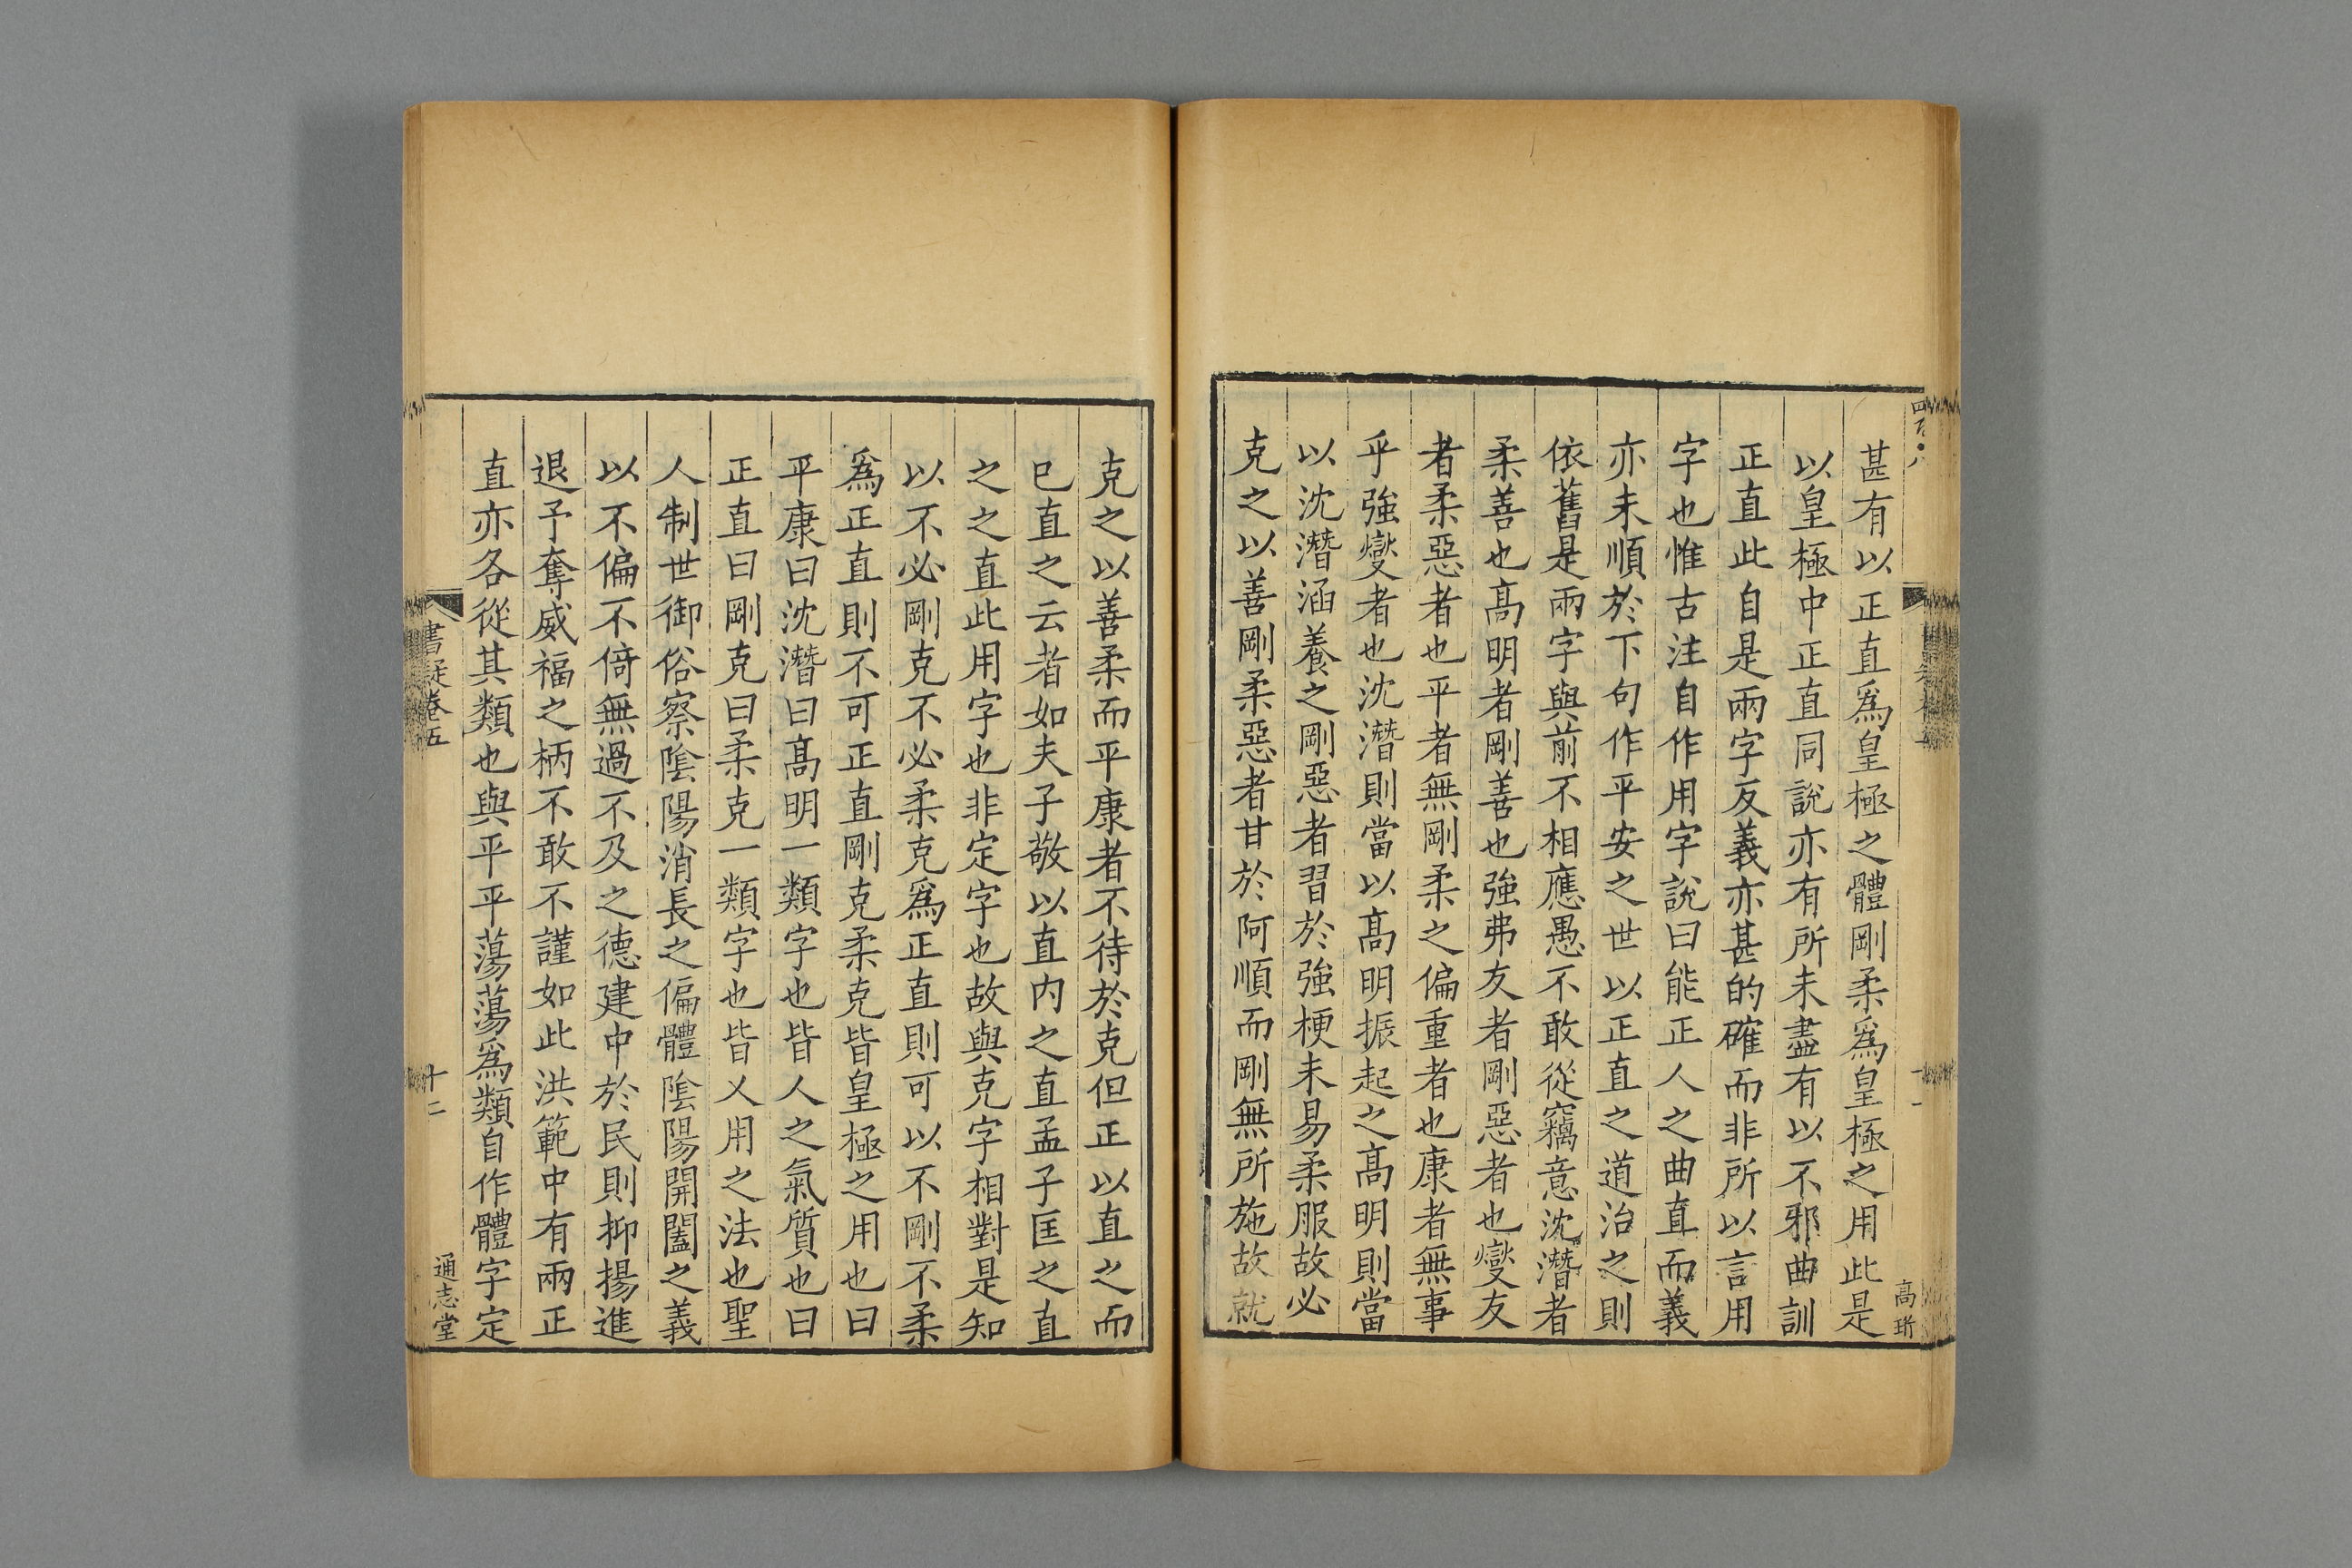 甚有以正直爲皇極之體剛柔爲皇極之用此是
以皇極中正直同說亦有所未盡有以不邪曲訓
正直此自是兩字反義亦甚的確而非所以言用
字也惟古注自作用字說曰能正人之曲直而義
亦未順於下句作平安之世以正直之道治之則
依舊是兩字與前不相應愚不敢從竊意沈潛者
柔善也高明者剛善也強弗友者剛惡者也燮友
者柔惡者也平者無剛柔之偏重者也康者無事
乎強燮者也沈潛則當以高明振起之高明則當
以沈潛涵養之剛惡者習於強梗未易柔服故必
克之以善剛柔惡者甘於阿順而剛無所施故就
高珩
克之以善柔而平康者不待於克但正以直之而
已直之云者如夫子敬以直内之直孟子匡之直
之之直此用字也非定字也故與克字相對是知
以不必剛克不必柔克爲正直則可以不剛不柔
爲正直則不可正直剛克柔克皆皇極之用也曰
平康曰沈潛曰高明一類字也皆人之氣質也曰
正直曰剛克曰柔克一類字也皆乂用之法也聖
人制世御俗察陰陽消長之偏體陰陽開闔之義
以不偏不倚無過不及之德建中於民則抑揚進
退予奪威福之柄不敢不謹如此洪範中有兩正
直亦各從其類也與平平蕩蕩爲類自作體字定
書疑卷五
十二
通志堂